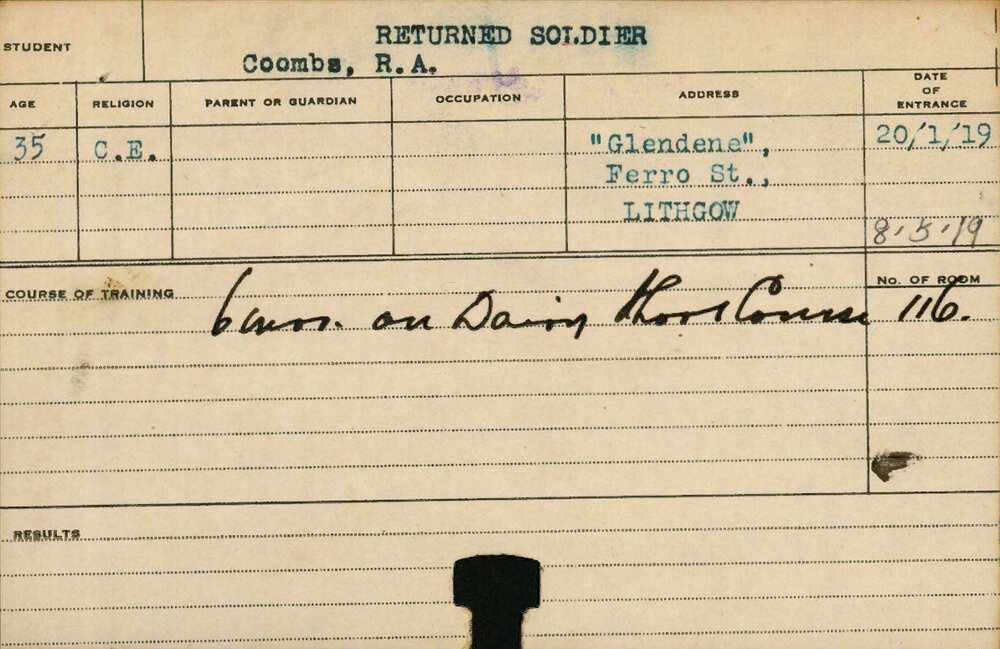 STUDENT RETURNED SOLDIER
Coombs, R.A.
AGE RELIGION PARENT OR GUARDIAN OCCUPATION ADDRESS DATE OF ENTRANCE
35 C.E. "Glendene", 20/1/19
Ferro St.,
LITHGOW
8.5.19
COURSE OF TRAINING No. OF ROOM
6 mos. on Dairy Short Course 116.
RESULTS